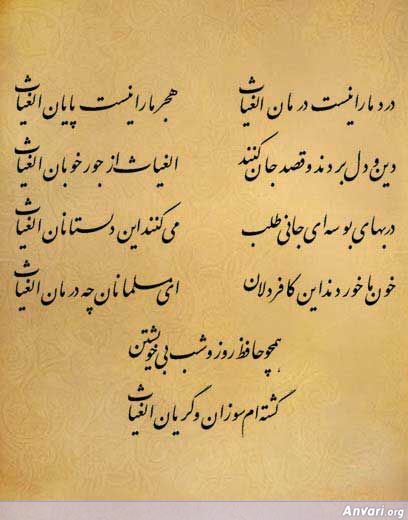 درد ما را نیست درمان الغیاث
هجر ما را نیست پایان الغیاث
دین و دل بردند و قصد جان کنند
الغیاث از جور خوبان الغیاث
در بهای بوسه‌ای جانی طلب
می‌کنند این دلستانان الغیاث
خون ما خوردند این کافر دلان
ای مسلمانان چه درمان الغیاث
همچو حافظ روز و شب بی خویشتن
گشته‌ام سوزان و گریان الغیاث
Anvari.org